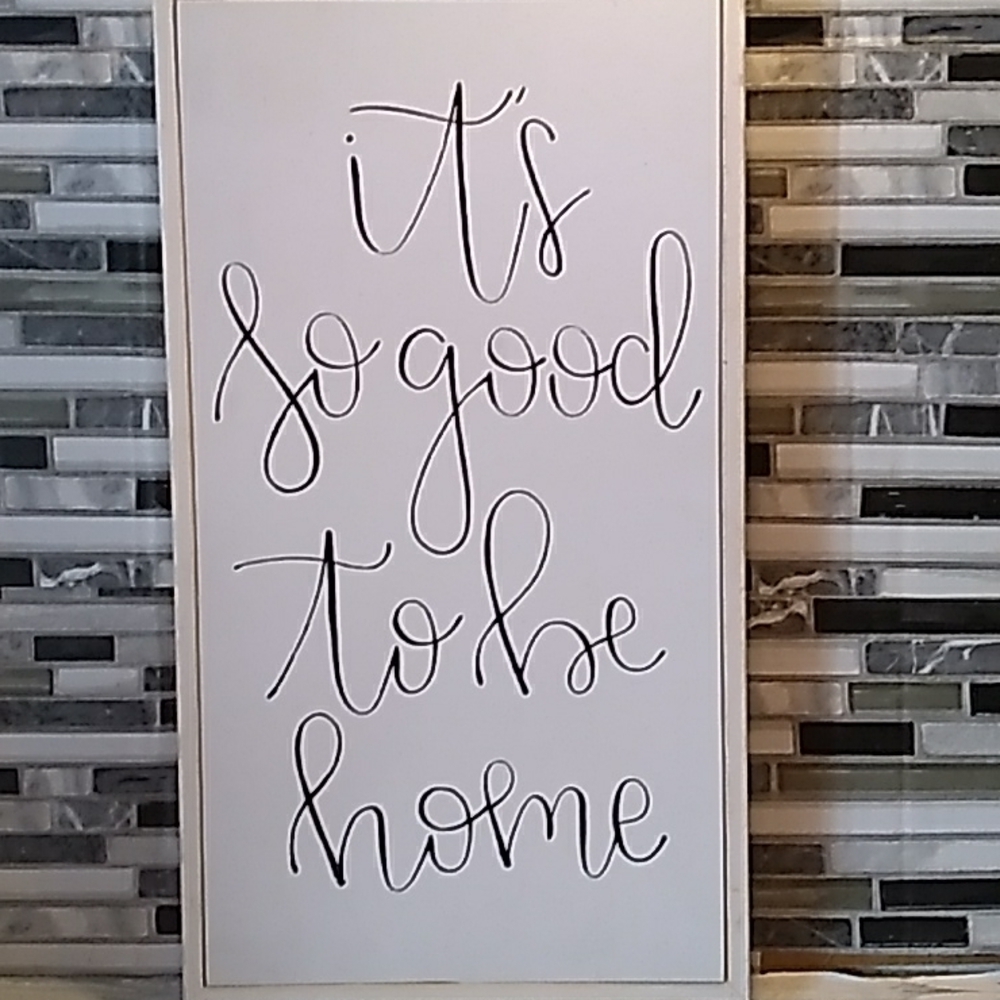 it's
so good
to be
home